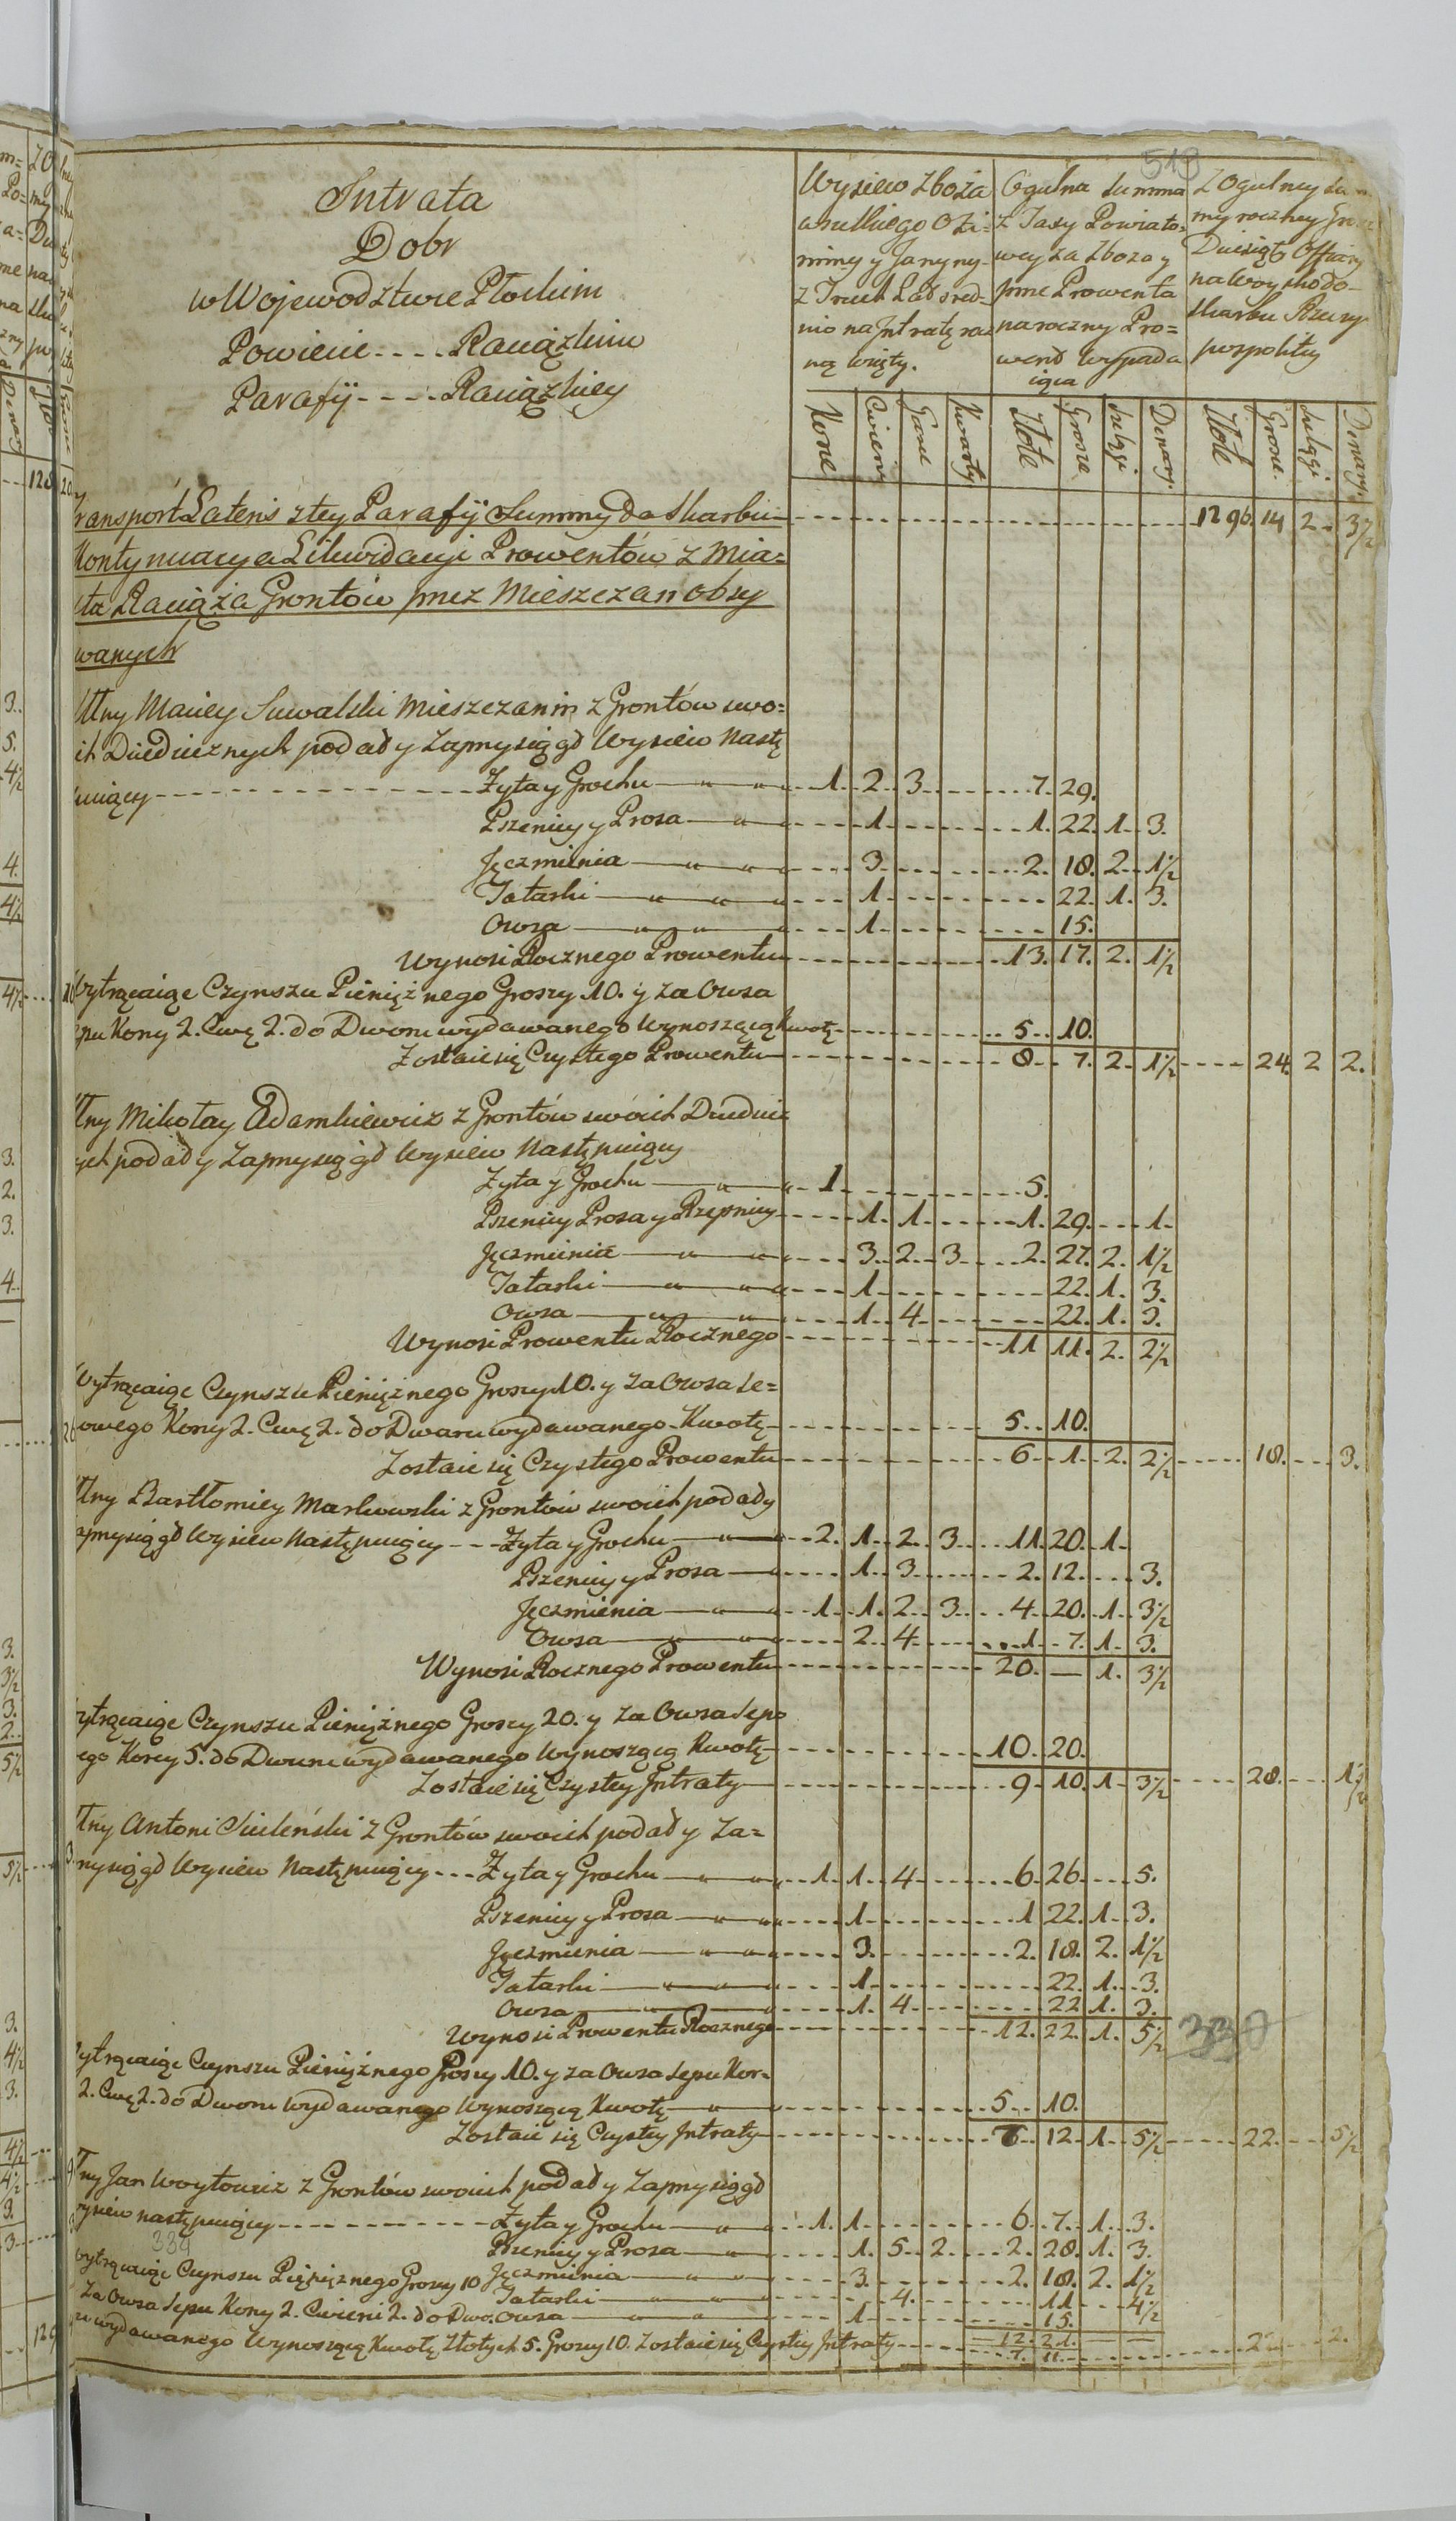 513
Intrata
Dobr
w Wojewodztwie Płockim
Powiecie .... Raciązkim
Parafÿ - - - - Raciązkiey
Wysiew Zboża
wszelkiego Ozi=
minny y Jarynny
z Trzech Lat sred=
nio na Jntratę rocz
ną wzięty.
Ogulna Summa
z Taxy Powiato=
wey za Zboza y
jnne Prowenta
na roczny Pro=
went wypada
iąca
Z Ogulney Sum
my roczney Grosz
Dziesiąty Offiary
na Woysko do
Skarbu Rzeczy
pospolitey
Korce Cwierci Garce Kwarty Złote Grosze Szelągi Denary. Złote Grosze. Szelągi. Denary.
Transport Lateris z tey Parafÿ Summy do Skarbu 1296. 14 2 3½
Kontynuacya Likwidacyi Prowentów z Mia=
sta Raciąża Grontów przez Mieszczan obsy
wanych
Maciey Suwalski Mieszczanin z Grontów swo=
ich Dziedzicznych podał y Zaprzysiągł Wysiew Nastę
puiący Zyta y Grochu 1. 2 3 7. 29.
Pszenicy y Prosa 1 1. 22. 1. 3.
Jęczmienia 3 2. 18. 2. 1½
Tatarki 1 22. 1. 3.
Owsa 1 15.
Wynosi Rocznego Prowentu 13. 17. 2. 1½
Wytrącaiąc Czynszu Pieniężnego Groszy 10. y za Owsa
Sepu Korcy 2. Cwę 2. do Dworu wydawanego Wynoszącą Kwotę 5. 10.
Zostaie się Czystego Prowentu 8. 7. 2. 1½ 24. 2 2.
Mikołay Adamkiewicz z Grontów swoich Dziedzic
podał y Zaprzysiągł Wysiew Następuiący
Zyta y Grochu 1 5.
Pszenicy Prosa y Rzepnicy 1. 1. 1. 29. 1.
Jęczmienia 3. 2. 3 2. 27. 2. 1½
Tatarki 1 22. 1. 3.
Owsa 1. 4 22. 1. 3.
Wynosi Prowentu Rocznego 11 11. 2. 2½
Wytrącaiąc Czynszu Pieniężnego Groszy 10. y za Owsa Se=
powego Korcy 2. Cwę 2. do Dworu wydawanego Kwotę 5. 10.
Zostaie się Czystego Prowentu 6 1. 2. 2½ 18. 3.
Bartłomiey Markowski z Grontów swoich podał y
Zaprzysiągł Wysiew Następuiący Zyta y Grochu 2. 1. 2. 3 11. 20. 1.
Pszenicy y Prosa 1. 3 2. 12. 3.
Jęczmienia 1 1. 2. 3 4 20. 1. 3½
Owsa 2. 4 1. 7. 1. 3.
Wynosi Rocznego Prowentu 20. — 1. 3½
Wytrącaiąc Czynszu Pieniężnego Groszy 20. y za Owsa Sepo
wego Korcy 5. do Dworu wydawanego Wynoszącą Kwotę 10. 20.
Zostaie się Czystey Jntraty 9. 10. 1. 3½ 28. 1½
Antoni Sieleński z Grontów swoich podał y Za=
przysiągł Wysiew Następuiący Zyta y Grochu 1 1. 4 6 26. 5.
Pszenicy y Prosa 1 1 22. 1. 3.
Jęczmienia 3. 2. 18. 2. 1½
Tatarki 1 22. 1. 3.
Owsa 1. 4 22 1. 3.
Wynosi Prowentu Rocznego 12. 22. 1. 5½
330
Wytrącaiąc Czynszu Pieniężnego Groszy 10. y za Owsa Sepu Kor=
2. Cwę 2. do Dworu wydawanego Wynoszącą Kwotę 5. 10.
Zostaie się Czystey Jntraty 12. 1. 5½ 22. 5½
Jan Woytowicz z Grontów swoich podał y Zaprzysiągł
Wysiew następuiący Zyta y Grochu 1. 1 6. 7. 1. 3.
Pszenicy y Prosa 1. 5. 2 2. 28. 1. 3.
Jęczmienia 3. 2. 18. 2. 1½
Tatarki 4. 11 4½
Owsa 1 15.
12. 21. — —
Wytrącaiąc Czynszu Pieniężnego Groszy 10
Za Owsa Sepu Korcy 2. Cwierci 2. do Dwo.
ru wydawanego Wynoszącą Kwotę Złotych 5. Groszy 10. Zostaie się Czystey Jntraty 7. 11. 2.